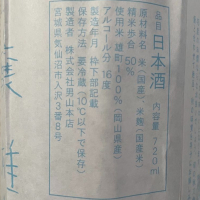 品目 日本酒 内容量 720ml
原材料名 米(国産)、米麹(国産米)
精米歩合 50%
使用米 雄町100%(岡山県産)
アルコール分 16度
製造年月 枠下部記載
保存方法 要冷蔵(10℃以下で保存)
製造者 株式会社男山本店
宮城県気仙沼市入沢3番8号